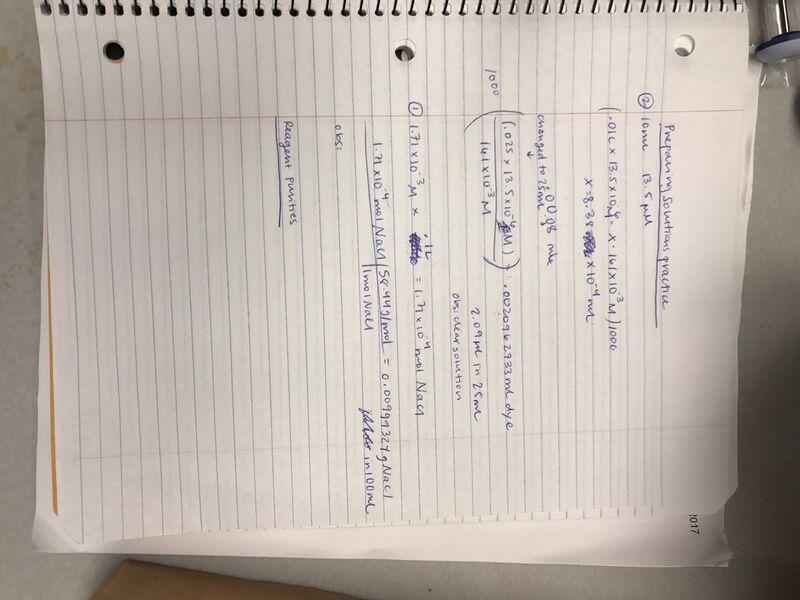 Preparing Solutions practice
② 10mL 13.5 µM
(.01L × 13.5×10⁻⁶M = x · 161×10⁻³ M) 1000
x = 8.38 × 10⁻⁴ mL
0.0008 mL
changed to 25mL
1000 ( (.025 × 13.5×10⁻⁶ M) / 161×10⁻³ M ) = .0020962733 mL dye
2.09 µL in 25mL
obs: clear solution
① 1.71×10⁻³ M × .1L = 1.71×10⁻⁴ mol NaCl
1.71×10⁻⁴ mol NaCl | 58.44g/mol = 0.00999324 g NaCl
1 mol NaCl in 100mL
obs:
Reagent Purities
2017